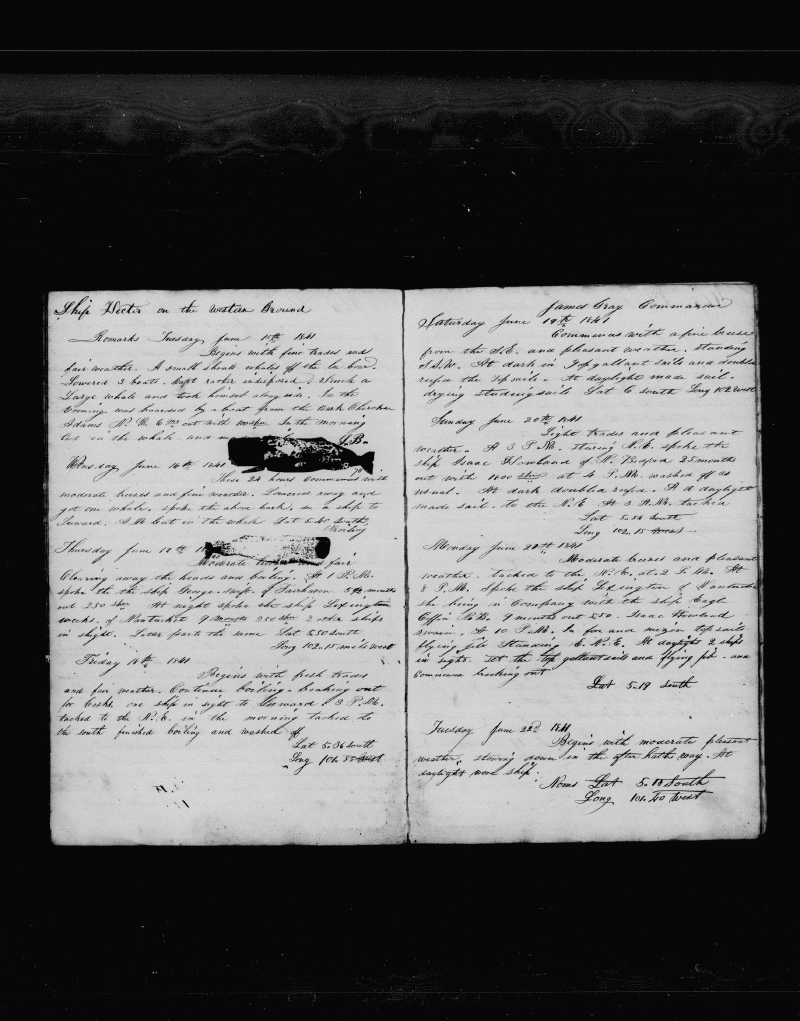 Ship Hector on the Western Ground
Remarks Tuesday, June 15th 1841
Begins with fine trades and
fair weather. A small shoale whales off the la bar
Lowered 3 boats. kept rather
Large whale and took himself along side. In the
evening was boarded by a boat from the bark Cherokee
Adams N. B. 6 mos out with In the morning
Cut in the whale and J. B.
Wensday, June 16th 1841
These 24 hours commences with
moderate breeses and fine weather. Lowered away and
got one whale. spoke the above bark. in a ship to
Leward. A M cut in the whale Lat 5.40 South.
boiling
Thursday June 17th
Moderate trades and fair
Clearing away the heads and boiling. At 1 P.M.
spoke the the ship George. Taft. of Fairhaven months
out 250 sbm At night spoke the ship Lexington
weeks. of Nantucket 9 months 250 sbm 2 other ships
in shight. Later parts the same Lat 5.50 South
Long 102.15 mils west
Friday 18th 1841
Begins with fresh trades
and fair weather. Continue boiling. breaking out
for Casks. one ship in sight to Leaward 3 P.M.
tacked to the N.E. in the morning tacked to
the south finished boiling and washed off
Lat 5.36 south
Long 101.55 West
James Gray Commander
Saturday June 19th 1841
Commences with a fine breese
from the S.E. and pleasant weather. standing
S.S.W. At dark in Topgallant Sails and double
reefed the topsails. At daylight made sail.
drying studingsails Lat 6 south Long 102 West
Sunday June 20th 1841
Light trades and pleasant
weather. A 3 P.M. stering N.E. spoke the
ship Isaac Howland of N. Bedford 25 months
out with 1000 sbm at 4 P.M. washed off as
usual. At dark doubled reefed. A d daylight
made sail. to the N.E A 3 A.M. tacked
Lat 5.54 South
Long 102.15 West
Monday June 21th 1841
Moderate breeses and pleasant
weather. tacked to the N.E. at. 2 P.M. At
8 P.M. Spoke the ship Lexington of Nantucket
she being in Company with the ship Eagle
Coffin 9 months out 550. Isaac Howland
A 10 P.M. In fore and mizen top sails
flying jib Standing E.N.E. At daylight 2 ships
in sight. Set the top gallantsails and flying jib. and
commence breaking out
Lat 5.19 South
Tuesday June 22d 1841
Begins with moderate pleasant
weather. stowing down in the after hatch way. At
daylight wore ship.
Noms Lat 5.18 South
Long 101.40 West